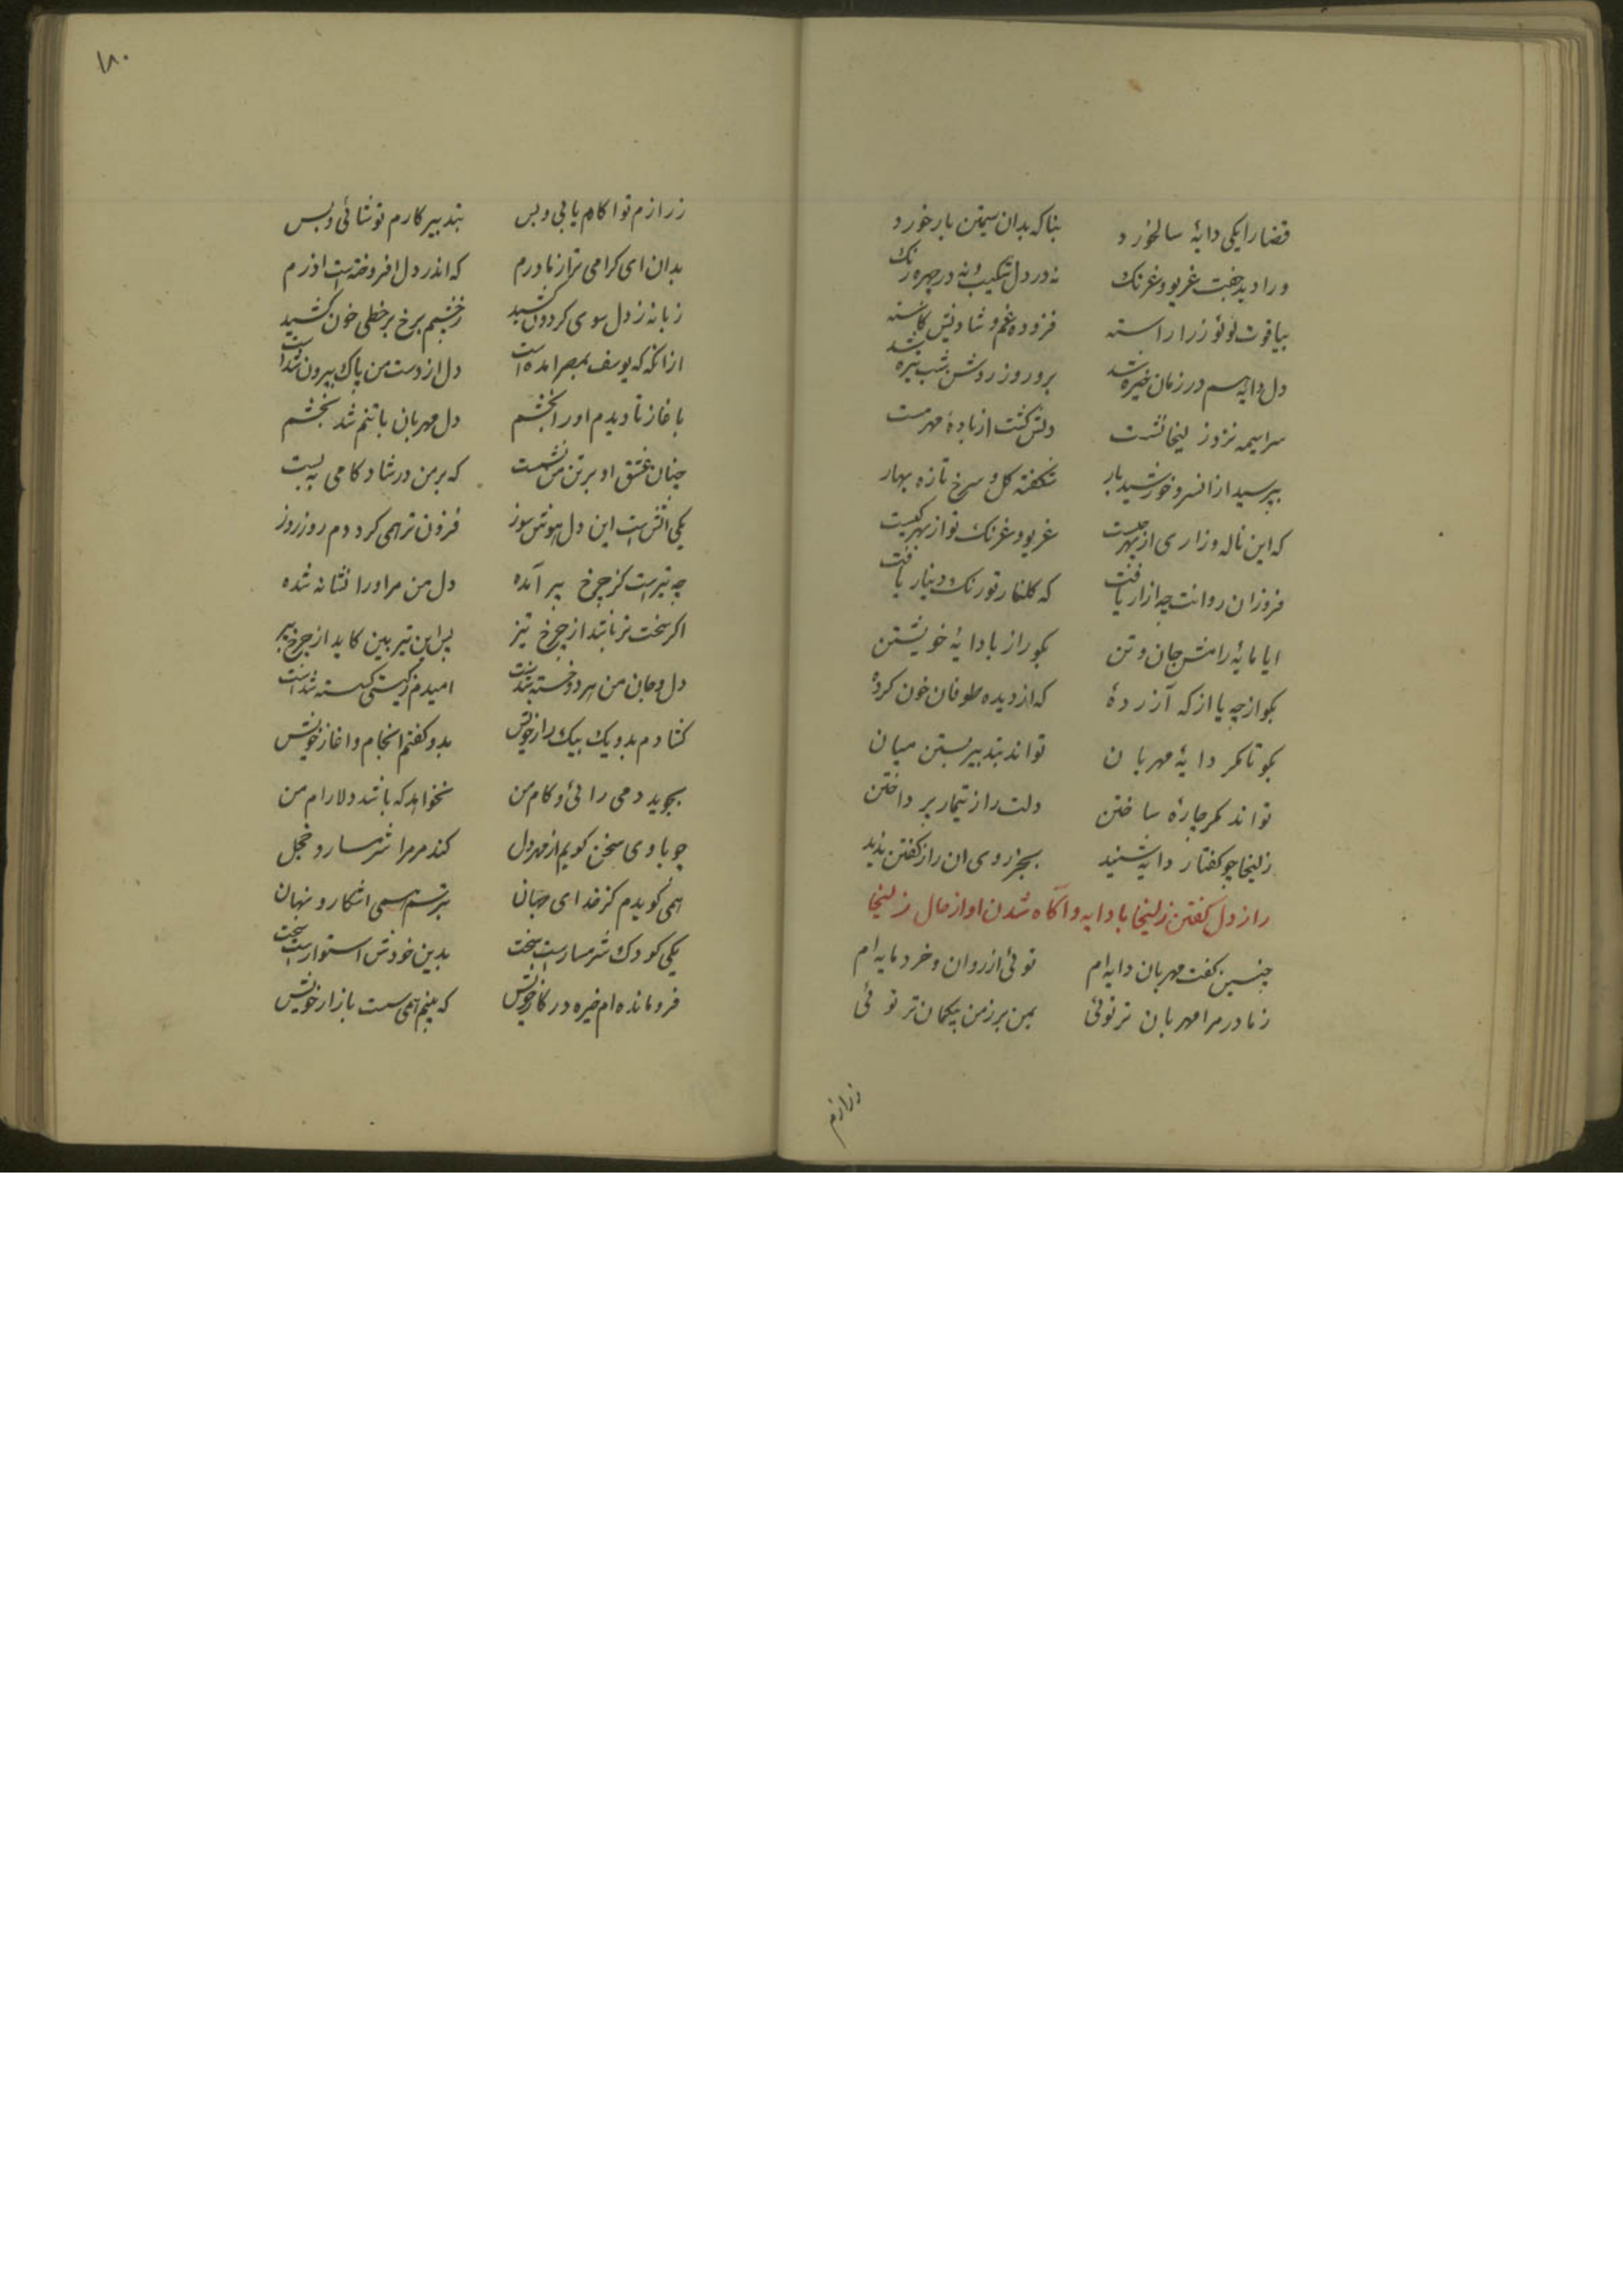 قضا را یکی دایهٔ سالخورد بناکه بدان سیمتن بار خورد
ورا دید جفت غریو و غرنک نه در دل شکیب و نه در چهره رنک
بیاقوت لؤلؤ زرا راسته فزوده غم و شادیش کاسته
دل دایه هم در زمان خیره شد برو روز روشن شب تیره شد
سراسیمه نزد زلیخا نشست دلش کشت از بادهٔ مهر مست
بپرسید از انسرو خورشید بار شکفته کل و سرخ تازه بهار
که این ناله و زاری از بهر چیست غریو و غرنک تو از بهر کیست
فروزان روانت چه ازار یافت که کلنار تو رنک دینار یافت
ایا مایهٔ رامش جان و تن بکو راز با دایهٔ خویشتن
بکو از چه یا از که آزردهٔ که از دیده طوفان خون کردهٔ
بکو تا مکر دایهٔ مهربان تواند بتدبیر بستن میان
تواند مکر چارهٔ ساختن دلت را ز تیمار پرداختن
زلیخا چو کفتار دایه شنید بجز روی ان راز کفتن ندید
راز دل کفتن زلیخا با دایه و آکاه شدن او از حال زلیخا
چنین کفت مهربان دایه‌ام توئی از روان و خرد مایه‌ام
ز مادر مرا مهربان تر توئی بمن بر ز من بیکمان تر توئی
زرازم
۱۸۰
ز رازم تو اکاه یابی و بس بتدبیر کارم تو شائی و بس
بدان ای کرامی تر از مادرم که اندر دل افروخته‌ست اذرم
زبانه ز دل سوی کردون کشید ز خشم برخ بر خطی خون کشید
ازانکه که یوسف بمصر امده است دل از دست من پاک بیرون شداست
باغاز تا دیدم او را بخشم دل مهربان با تنم شد بخشم
چنان عشق او بر تن من نشست که بر من در شادکامی ببست
یکی اتش است این دل هوش سوز فزون تر همی کرددم روز روز
چه تیرست کز چرخ پیر آمده دل من مر او را نشانه شده
اکر سخت تر باشد از چرخ تیز پس این تیر بین کاید از چرخ پیر
دل و جان من هر دو خسته شدست امیدم ز کیتی کسسته شداست
کشادم بدو یک بیک راز خویش بدو کفتم انجام و اغاز خویش
بجوید دمی رائی و کام من نخواهد که باشد دلارام من
چو با وی سخن کویم از مهر دل کند مر مرا شرمسار و خجل
همی کویدم کز خدای جهان بترسم همی اشکار و نهان
یکی کودک شرمسارست سخت بدین خودش استوارست سخت
فرو مانده‌ام خیره در کار خویش که بینم همی سست بازار خویش